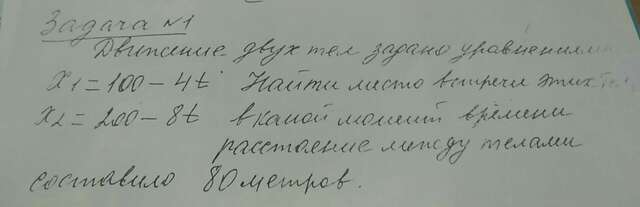 Задача №1
Движение двух тел задано уравнениями
x1 = 100 - 4t Найти место встречи этих тел
x2 = 200 - 8t в какой момент времени
расстояние между телами
составило 80 метров.